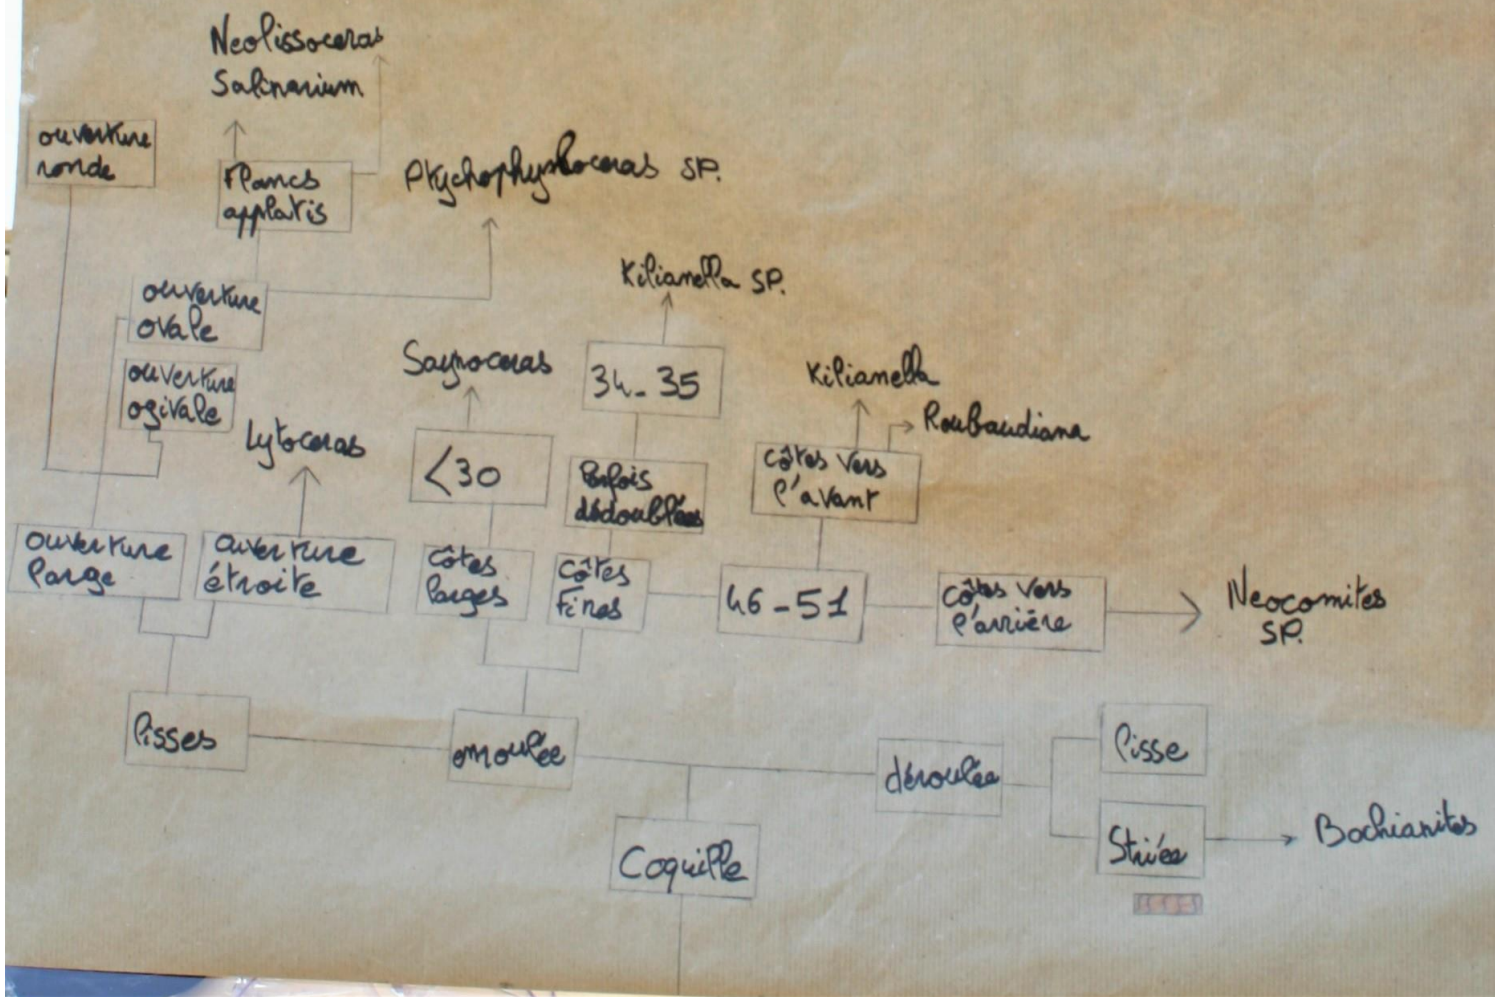 Neolissoceras
Salinarium
ouverture
ronde
Flancs
applatis
Ptychophylloceras SP.
Kilianella SP.
ouverture
ovale
Saynoceras
34-35
Kilianella
Roubaudiana
ouverture
ogivale
Lytoceras
<30
Parfois
dédoublées
côtes vers
l'avant
ouverture
large
ouverture
étroite
côtes
larges
côtes
Fines
46-51
côtes vers
l'arrière
Neocomites
SP.
lisses
enroulée
déroulée
lisse
Striée
Bochianites
Coquille